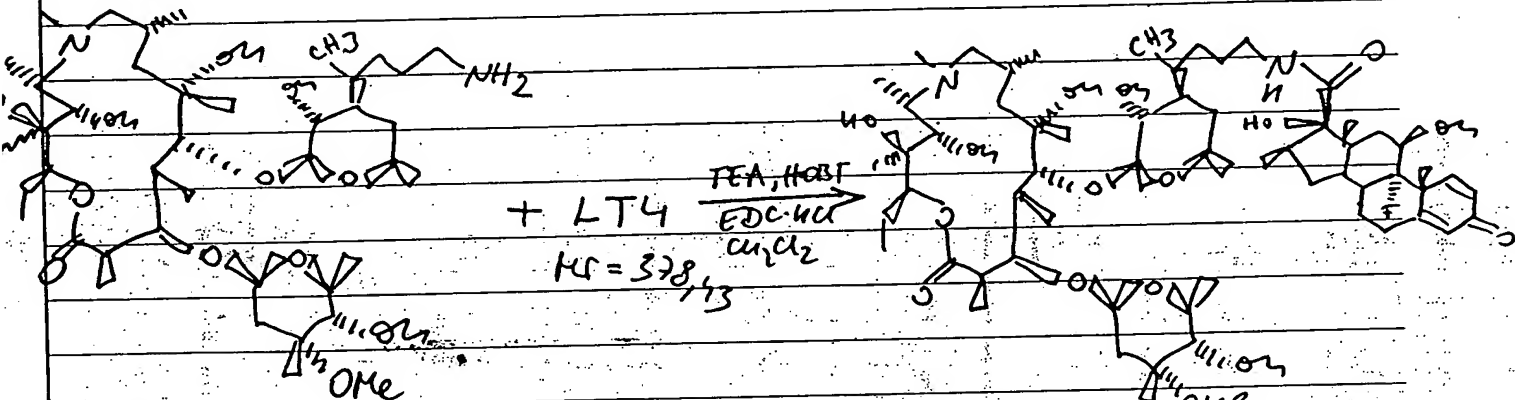 N
OH
CH3
OH
NH2
OH
O
O
O
O
O
O
OH
OMe
+ LT4
TEA, HOBT
EDC·HCl
CH2Cl2
Mr = 378,43
N
HO
OH
OH
OH
CH3
N
H
O
HO
OH
F
O
O
O
O
O
O
O
OH
OMe